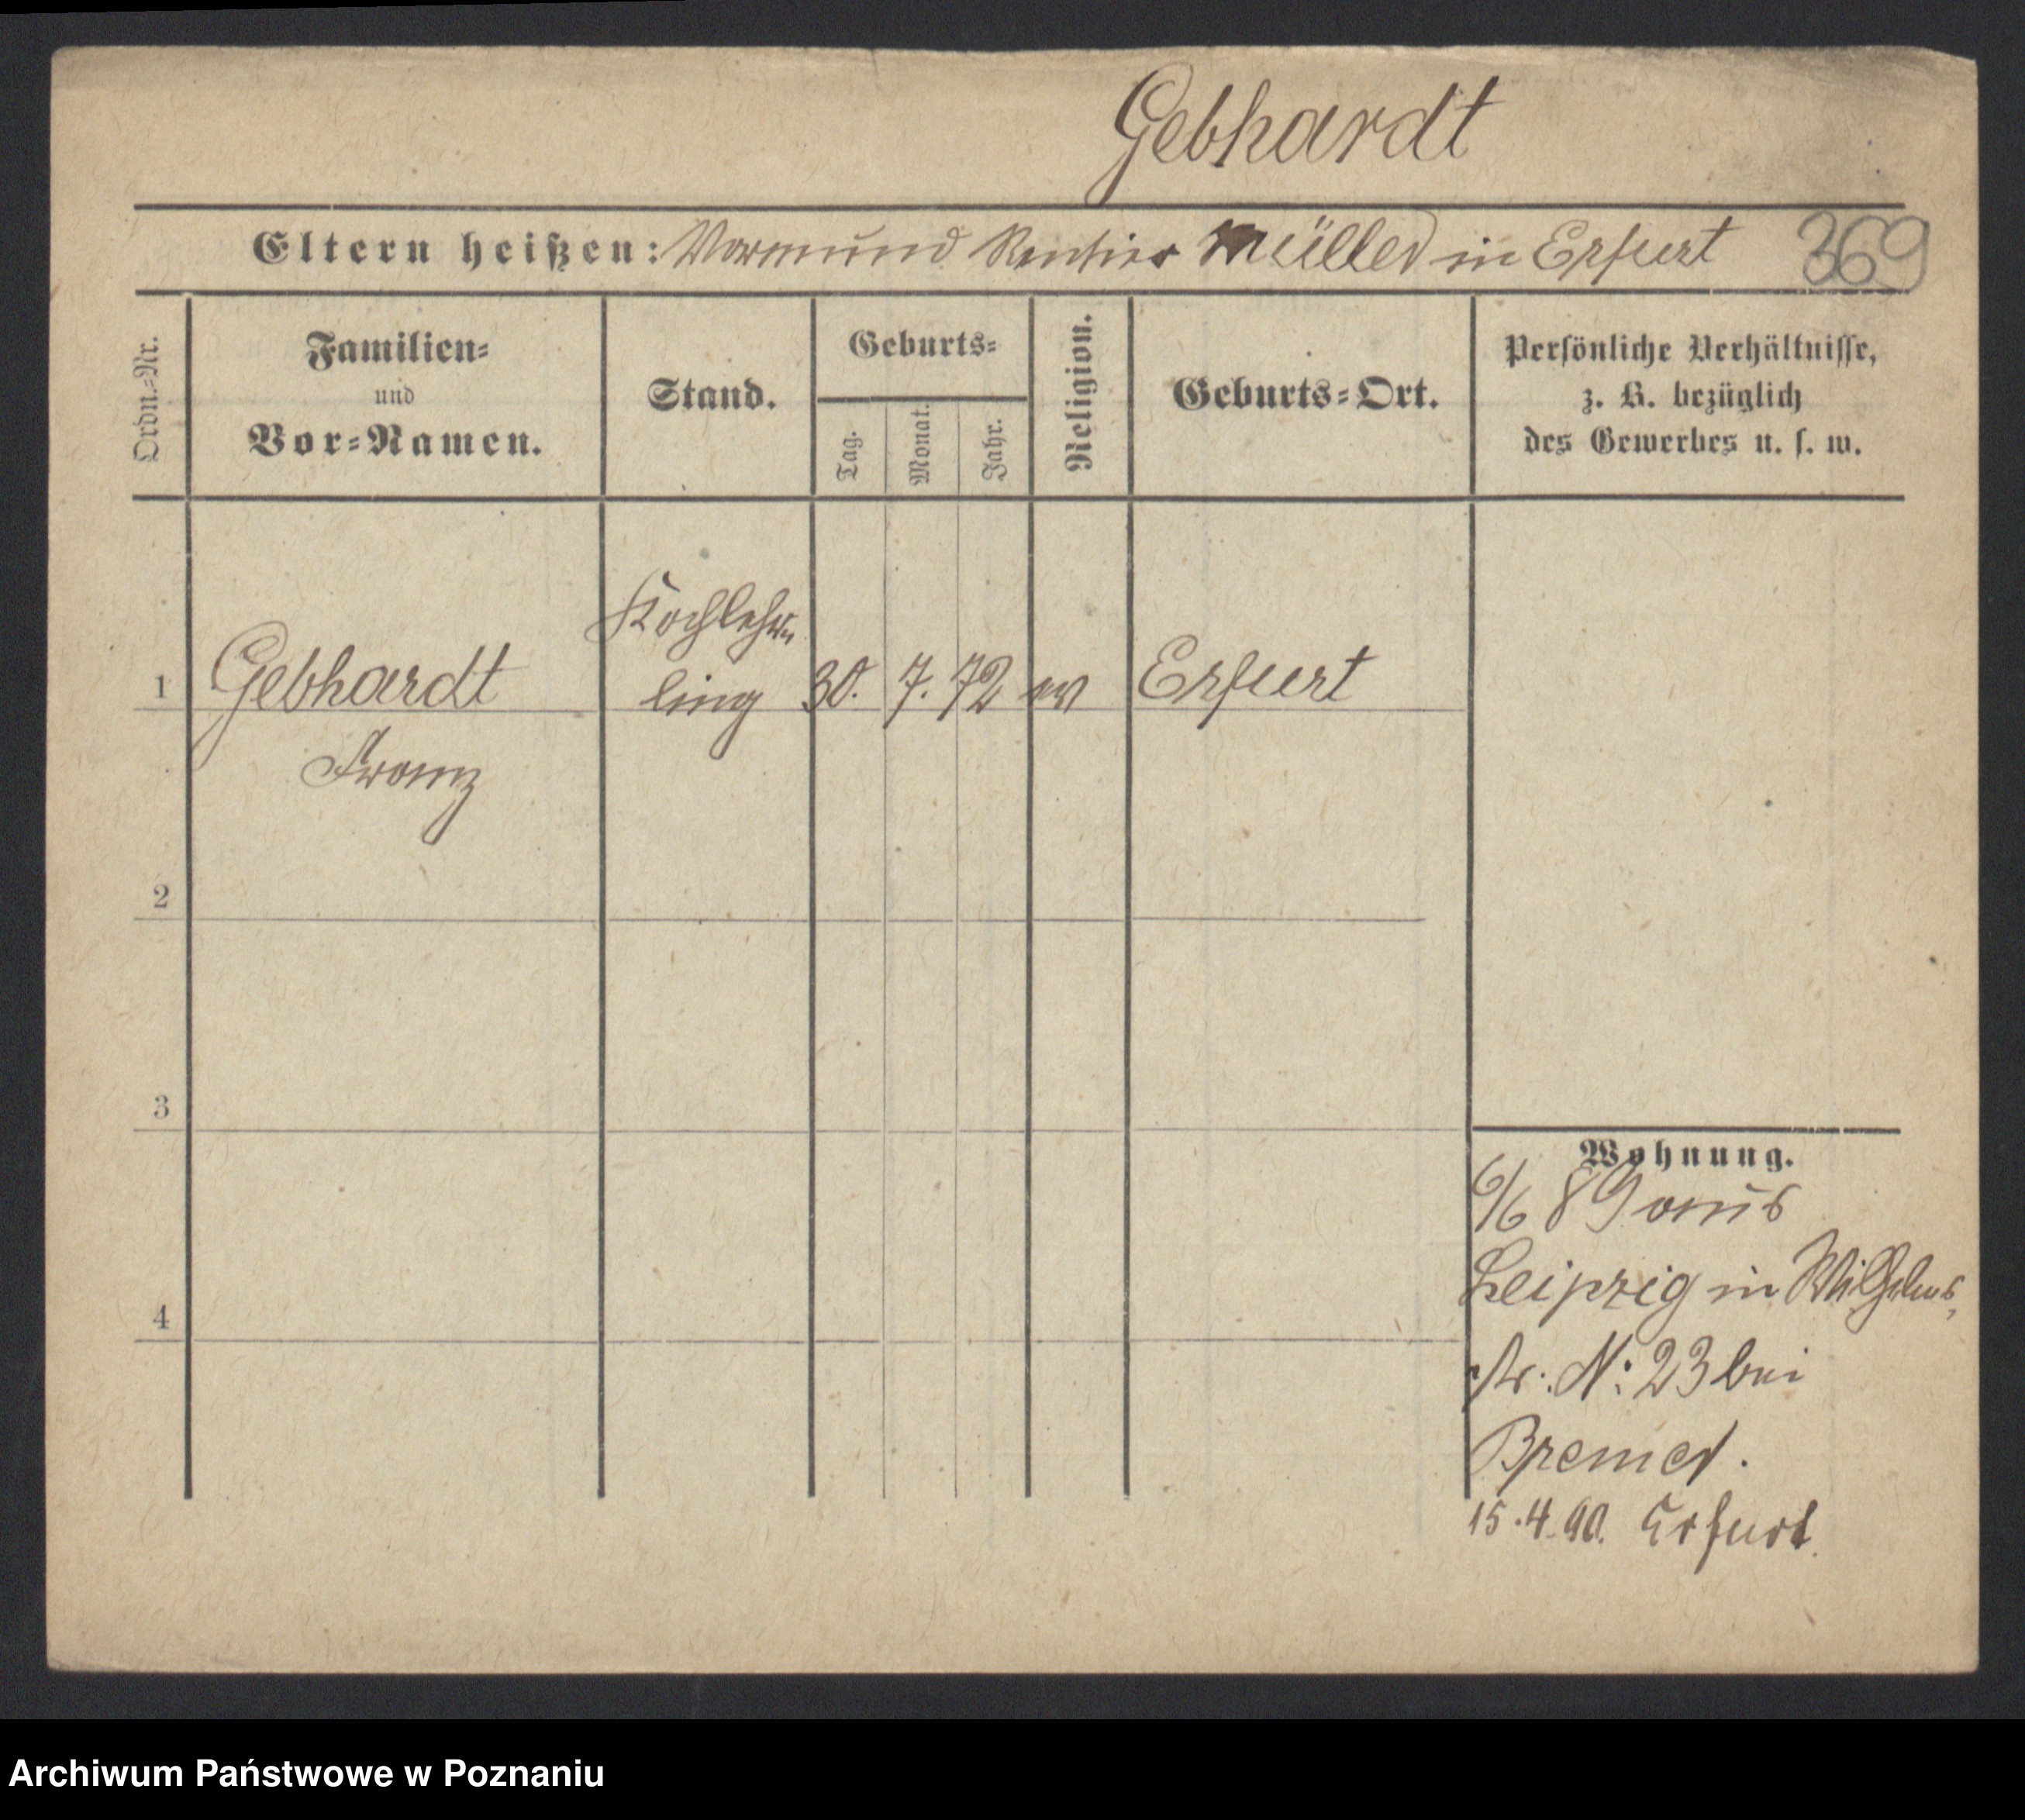 Gebhardt
Eltern heißen: Vormund Rentier Müller in Erfurt 369
Ordn.=Nr.
Familien=
und
Vor=Namen.
Stand.
Geburts=
Tag.
Monat.
Jahr.
Religion.
Geburts=Ort.
Persönliche Verhältnisse,
z. B. bezüglich
des Gewerbes u. s. w.
Kochlehr
1 Gebhardt ling 30. 7. 72 ev Erfurt
Franz
2
3
4
Wohnung.
6/6 89 aus
Leipzig in Wilhelms
str. N: 23 bei
Bremer.
15.4.90. Erfurt.
Archiwum Państwowe w Poznaniu